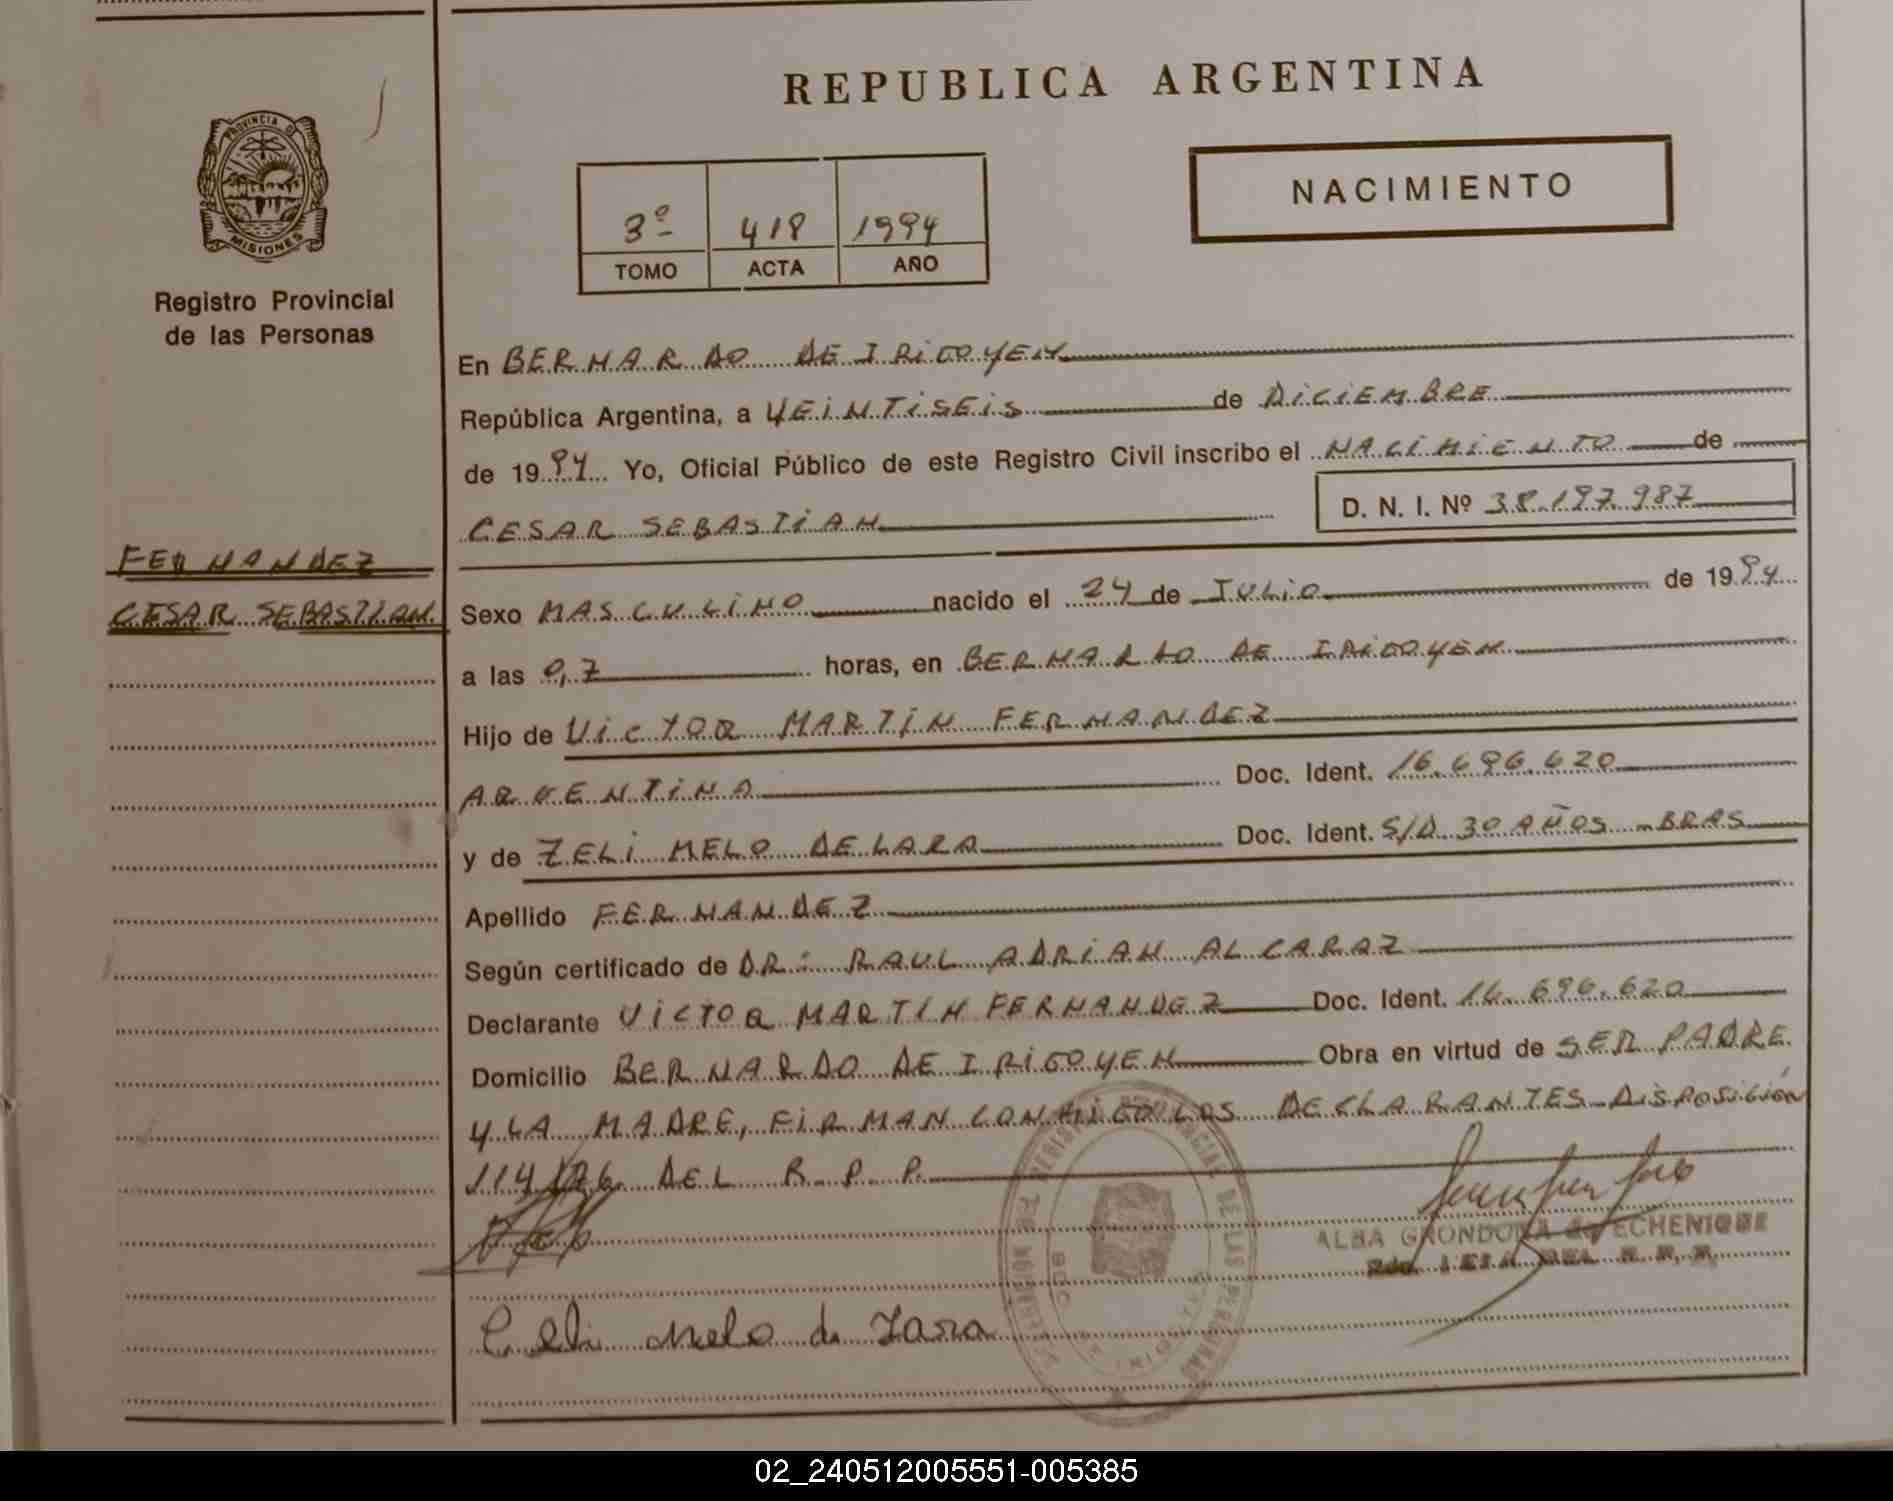 REPUBLICA ARGENTINA
PROVINCIA DE
MISIONES
Registro Provincial
de las Personas
3º 418 1994
TOMO ACTA AÑO
NACIMIENTO
En BERNARDO DE IRIGOYEN
República Argentina, a VEINTISEIS de DICIEMBRE
de 1994 Yo, Oficial Público de este Registro Civil inscribo el NACIMIENTO de
CESAR SEBASTIAN D. N. I. Nº 38.197.987
FERNANDEZ
CESAR SEBASTIAN
Sexo MASCULINO nacido el 24 de JULIO de 1994
a las 0,7 horas, en BERNARDO DE IRIGOYEN
Hijo de VICTOR MARTIN FERNANDEZ
ARGENTINA Doc. Ident. 16.696.620
y de ZELI MELO DE LARA Doc. Ident. S/D 30 AÑOS - BRAS
Apellido FERNANDEZ
Según certificado de DR: RAUL ADRIAN ALCARAZ
Declarante VICTOR MARTIN FERNANDEZ Doc. Ident. 16.696.620
Domicilio BERNARDO DE IRIGOYEN Obra en virtud de SER PADRE
Y LA MADRE, FIRMAN CONMIGO LOS DECLARANTES - DISPOSICIÓN
114/76 DEL R.P.P.
ALBA GRONDONA de ECHENIQUE
Zeli Melo de Lara
02_240512005551-005385